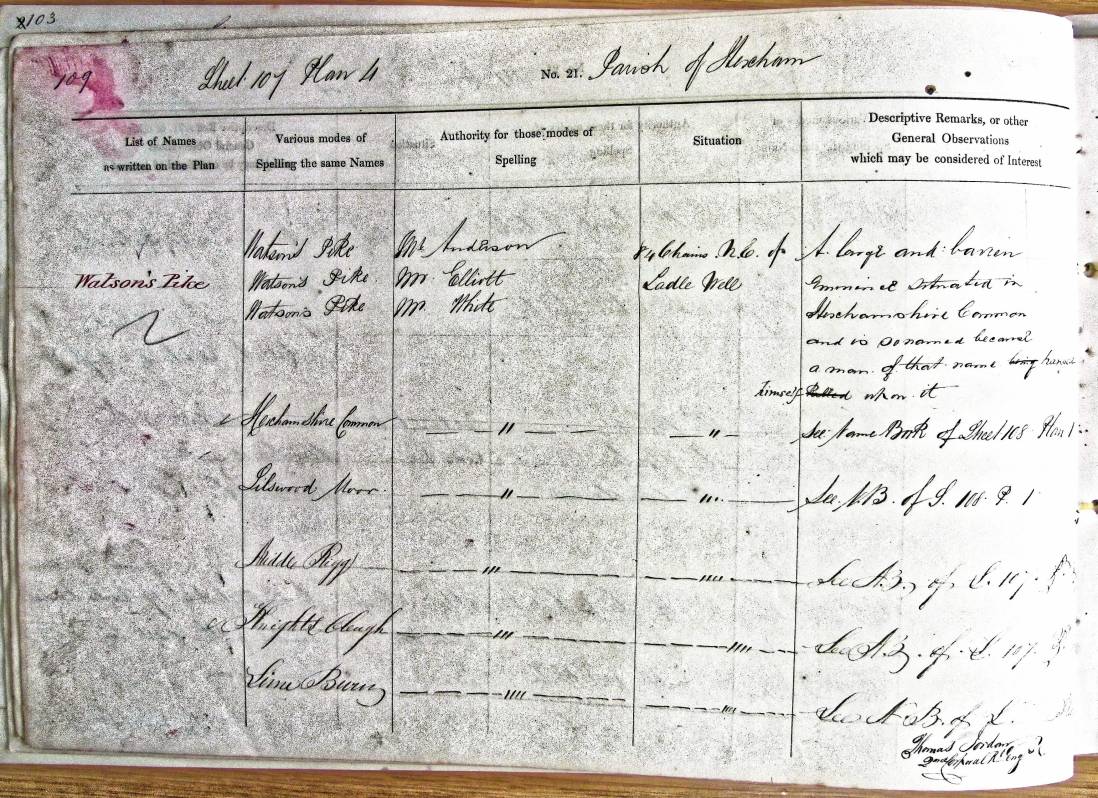 103
109
Sheet 107 Plan 4 No. 21. Parish of Hexham
List of Names
as written on the Plan
Various modes of
Spelling the same Names
Authority for those modes of
Spelling
Situation
Descriptive Remarks, or other
General Observations
which may be considered of Interest
Watson's Pike
Watson's Pike Mr. Anderson 84 Chains N.E. of A large and barren
Watson's Pike Mr. Elliott Ladle Well Eminence situated in
Watson's Pike Mr. White Hexhamshire Common
and is so named because
a man of that name being
himself upon it
Hexhamshire Common — " — — " — See Name Book of Sheet 108 Plan 1
Lilswood Moor — " — — " — See N.B. of S. 108 P. 1
Middle Rigg — " — — " — See N.B. of S. 107
Knights Cleugh — " — — " — See N.B. of S. 107
Lime Burn — " — — " — See N.B. of S.
Thomas Jordan
2nd Corporal R. Eng